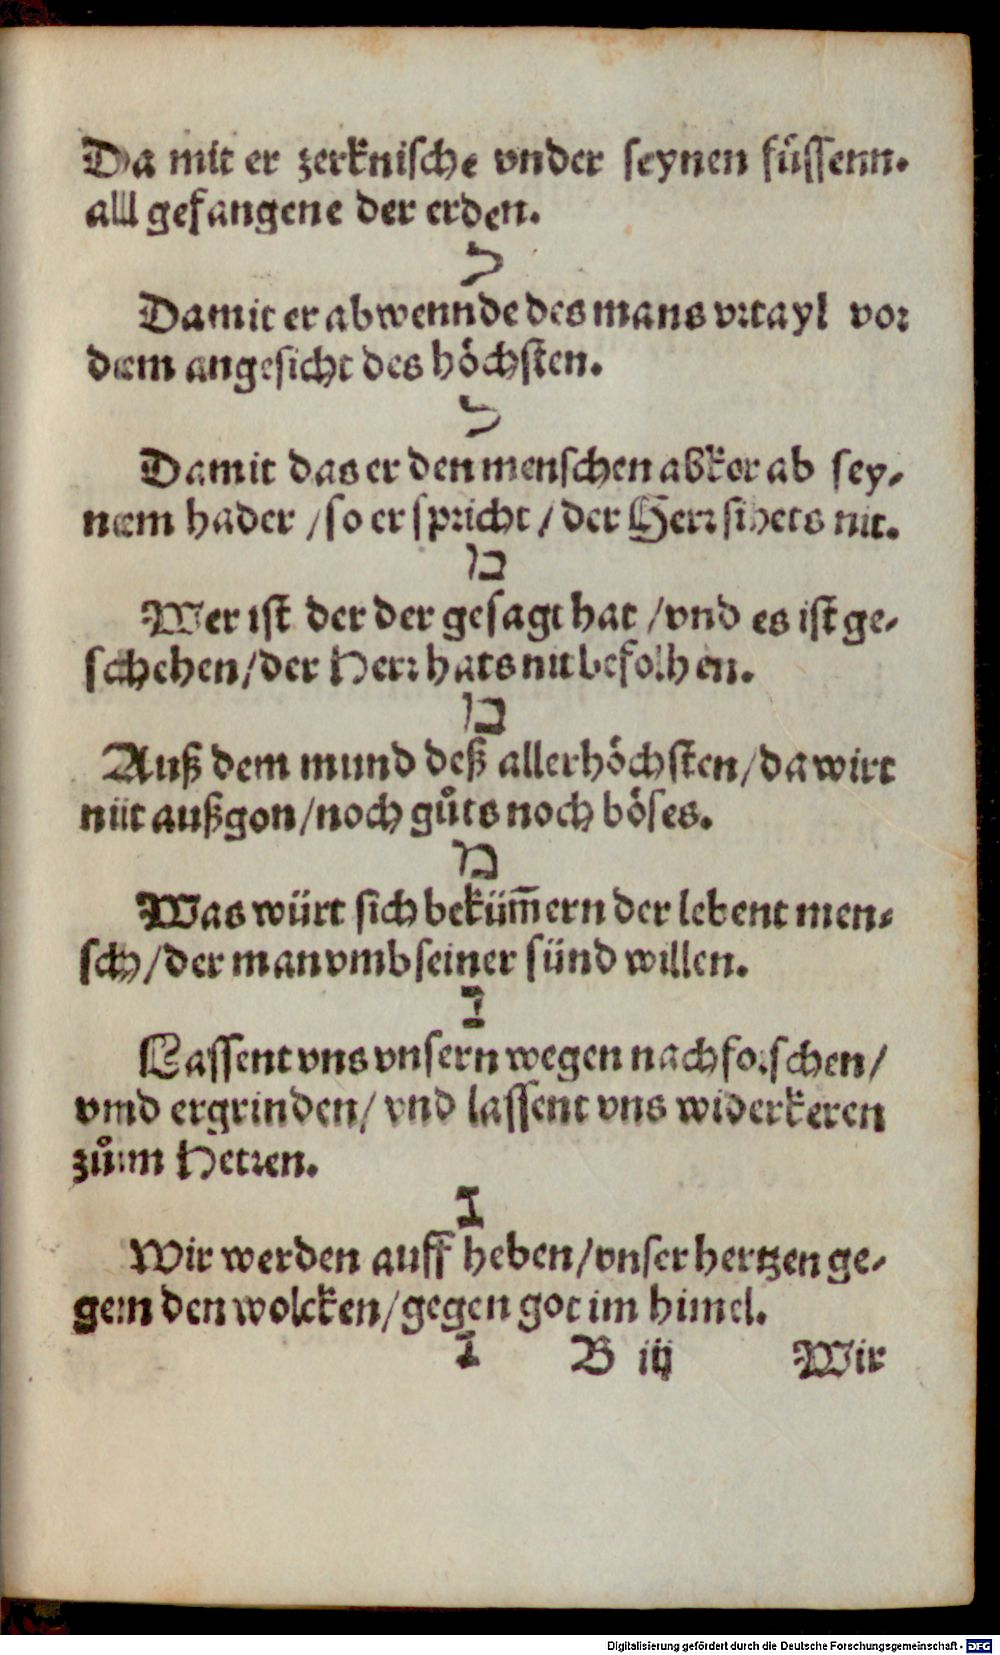 Da mit er zerknische vnder seynen füssenn.
alll gefangene der erden.
ל
Damit er abwennde des mans vrtayl vor
dem angesicht des höchsten.
ל
Damit das er den menschen abker ab sey⸗
nem hader /so er spricht / der Herr sihets nit.
מ
Wer ist der der gesagt hat /vnd es ist ge⸗
schehen/der Herr hats nit befolhen.
מ
Auß dem mund deß allerhöchsten/da wirt
niit außgon/noch gůts noch böses.
מ
Was würt sich beküm̄ern der lebent men⸗
sch /der man vmb seiner sünd willen.
נ
Lassent vns vnsern wegen nachforschen/
vmd ergrinden/ vnd lassent vns widerkeren
zům Herren.
נ
Wir werden auff heben/vnser hertzen ge⸗
gem den wolcken/gegen got im himel.
נ B iij Wir
Digitalisierung gefördert durch die Deutsche Forschungsgemeinschaft - DFG